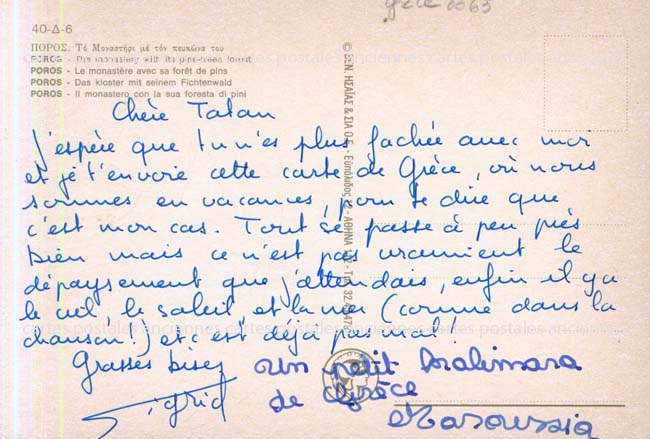 grèce 0063
40-Δ-6
ΠΟΡΟΣ. Τό Μοναστήρι μέ τόν πευκώνα του
POROS - The monastery with its pine-trees forest
POROS - Le monastère avec sa forêt de pins
POROS - Das kloster mit seinem Fichtenwald
POROS - Il monastero con la sua foresta di pini
© ΒΕΝ. ΗΣΑΪΑΣ & ΣΙΑ Ο.Ε.
ΑΘΗΝΑ
Chère Tatan
J'espère que tu n'es plus fachée avec moi
et je t'envoie cette carte de Grèce, où nous
sommes en vacances, pour te dire que
c'est mon cas. Tout se passe à peu près
bien mais ce n'est pas vraiment le
dépaysement que j'attendais, enfin il y a
le ciel, le soleil et la mer (comme dans la
chanson!) et c'est déjà pas mal!
Grosses bises
Sigrid
un petit kalimara
de Grèce
Maroussia
cartes postales anciennes cartes postales anciennes cartes postales anciennes